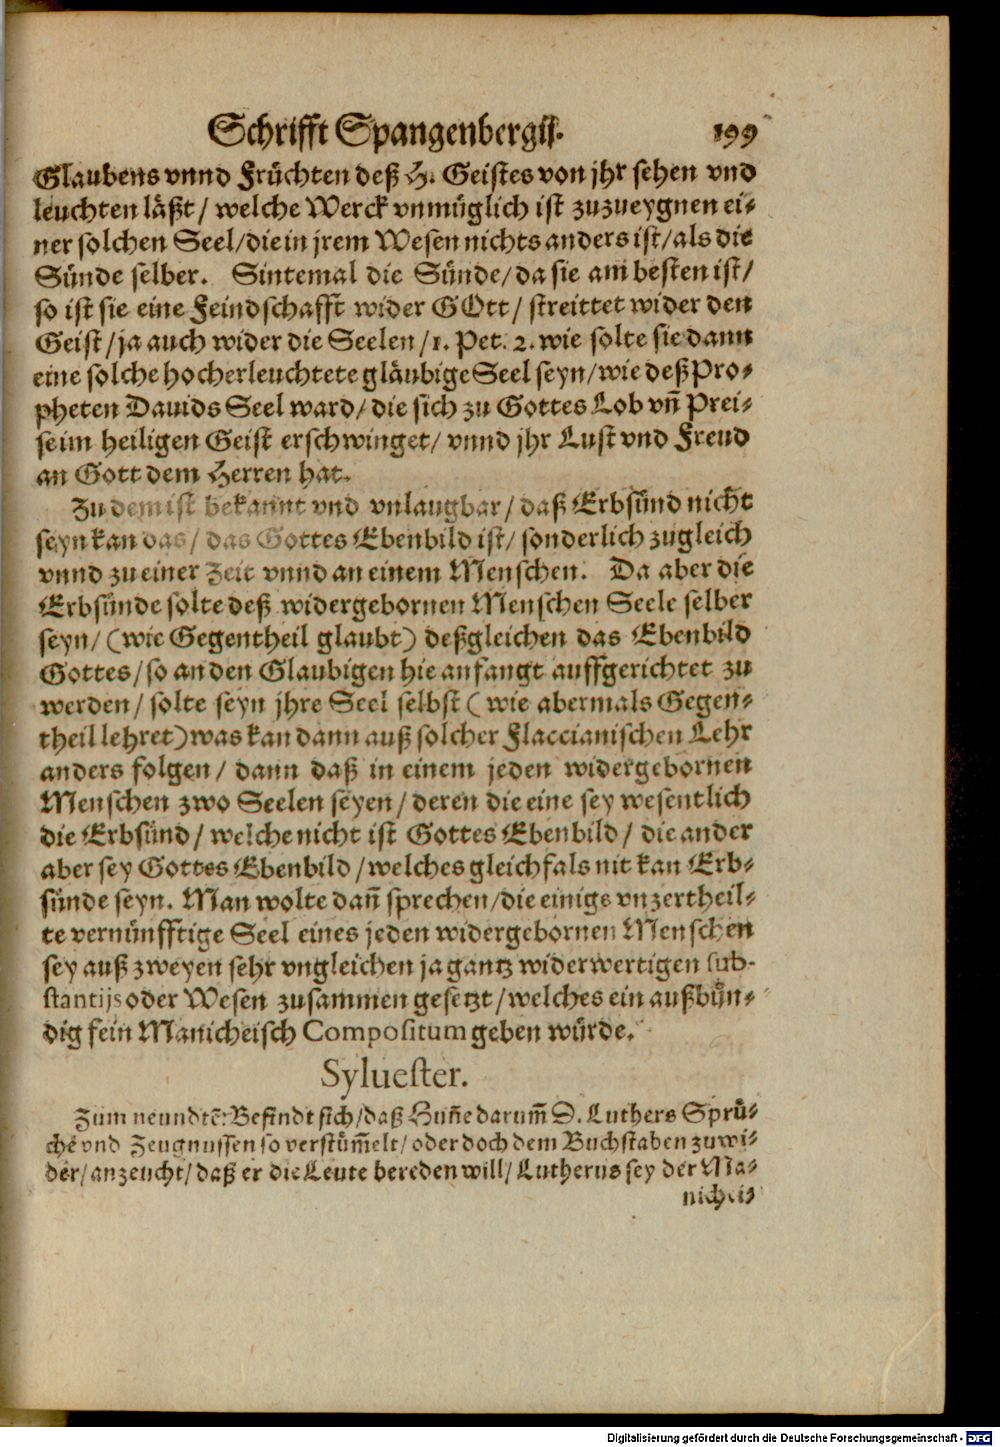 Schrifft Spangenbergij. 199
Glaubens vnnd Früchten deß H. Geistes von jhr sehen vnd
leuchten läßt / welche Werck vnmüglich ist zuzueygnen ei-
ner solchen Seel / die in jrem Wesen nichts anders ist / als die
Sünde selber. Sintemal die Sünde / da sie am besten ist /
so ist sie eine Feindschafft wider GOtt / streittet wider den
Geist / ja auch wider die Seelen / 1. Pet. 2. wie solte sie dann
eine solche hocherleuchtete gläubige Seel seyn / wie deß Pro-
pheten Dauids Seel ward / die sich zu Gottes Lob vñ Prei-
se im heiligen Geist erschwinget / vnnd jhr Lust vnd Freud
an Gott dem Herren hat.
Zu dem ist bekannt vnd vnlaugbar / daß Erbsünd nicht
seyn kan das / das Gottes Ebenbild ist / sonderlich zugleich
vnnd zu einer Zeit vnnd an einem Menschen. Da aber die
Erbsünde solte deß widergebornen Menschen Seele selber
seyn / (wie Gegentheil glaubt) deßgleichen das Ebenbild
Gottes / so an den Glaubigen hie anfangt auffgerichtet zu
werden / solte seyn jhre Seel selbst ( wie abermals Gegen-
theil lehret) was kan dann auß solcher Flaccianischen Lehr
anders folgen / dann daß in einem jeden widergebornen
Menschen zwo Seelen seyen / deren die eine sey wesentlich
die Erbsünd / welche nicht ist Gottes Ebenbild / die ander
aber sey Gottes Ebenbild / welches gleichfals nit kan Erb-
sünde seyn. Man wolte dañ sprechen / die einige vnzertheil-
te vernünfftige Seel eines jeden widergebornen Menschen
sey auß zweyen sehr vngleichen ja gantz widerwertigen sub-
stantijs oder Wesen zusammen gesetzt / welches ein außbün-
dig fein Manicheisch Compositum geben würde.
Syluester.
Zum neundtē: Befindt sich / daß Huñe darum̃ D. Luthers Sprü-
che vnd Zeugnussen so verstüm̃elt / oder doch dem Buchstaben zuwi-
der / anzeucht / daß er die Leute bereden will / Lutherus sey der Ma-
nichei-
Digitalisierung gefördert durch die Deutsche Forschungsgemeinschaft - DFG